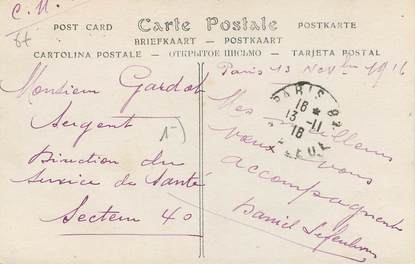 C. M.
POST CARD Carte Postale POSTKARTE
BRIEFKAART - POSTKAART
CARTOLINA POSTALE - ОТКРЫТОЕ ПИСЬМО - TARJETA POSTAL
Monsieur Gardot
Sergent
Direction du
Service de Santé
Secteur 40
1-)
Paris 13 Novbre 1916
PARIS 87
18 *
13 - 11
16
Mes meilleurs
vœux vous
accompagnent
Daniel